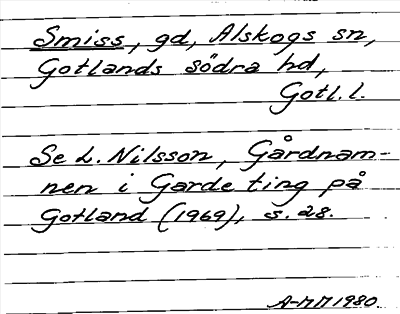 Smiss, gd, Alskogs sn,
Gotlands södra hd,
Gotl. l.
Se L. Nilsson, Gårdnam-
nen i Garde ting på
Gotland (1969), s. 28.
A-MM 1980.